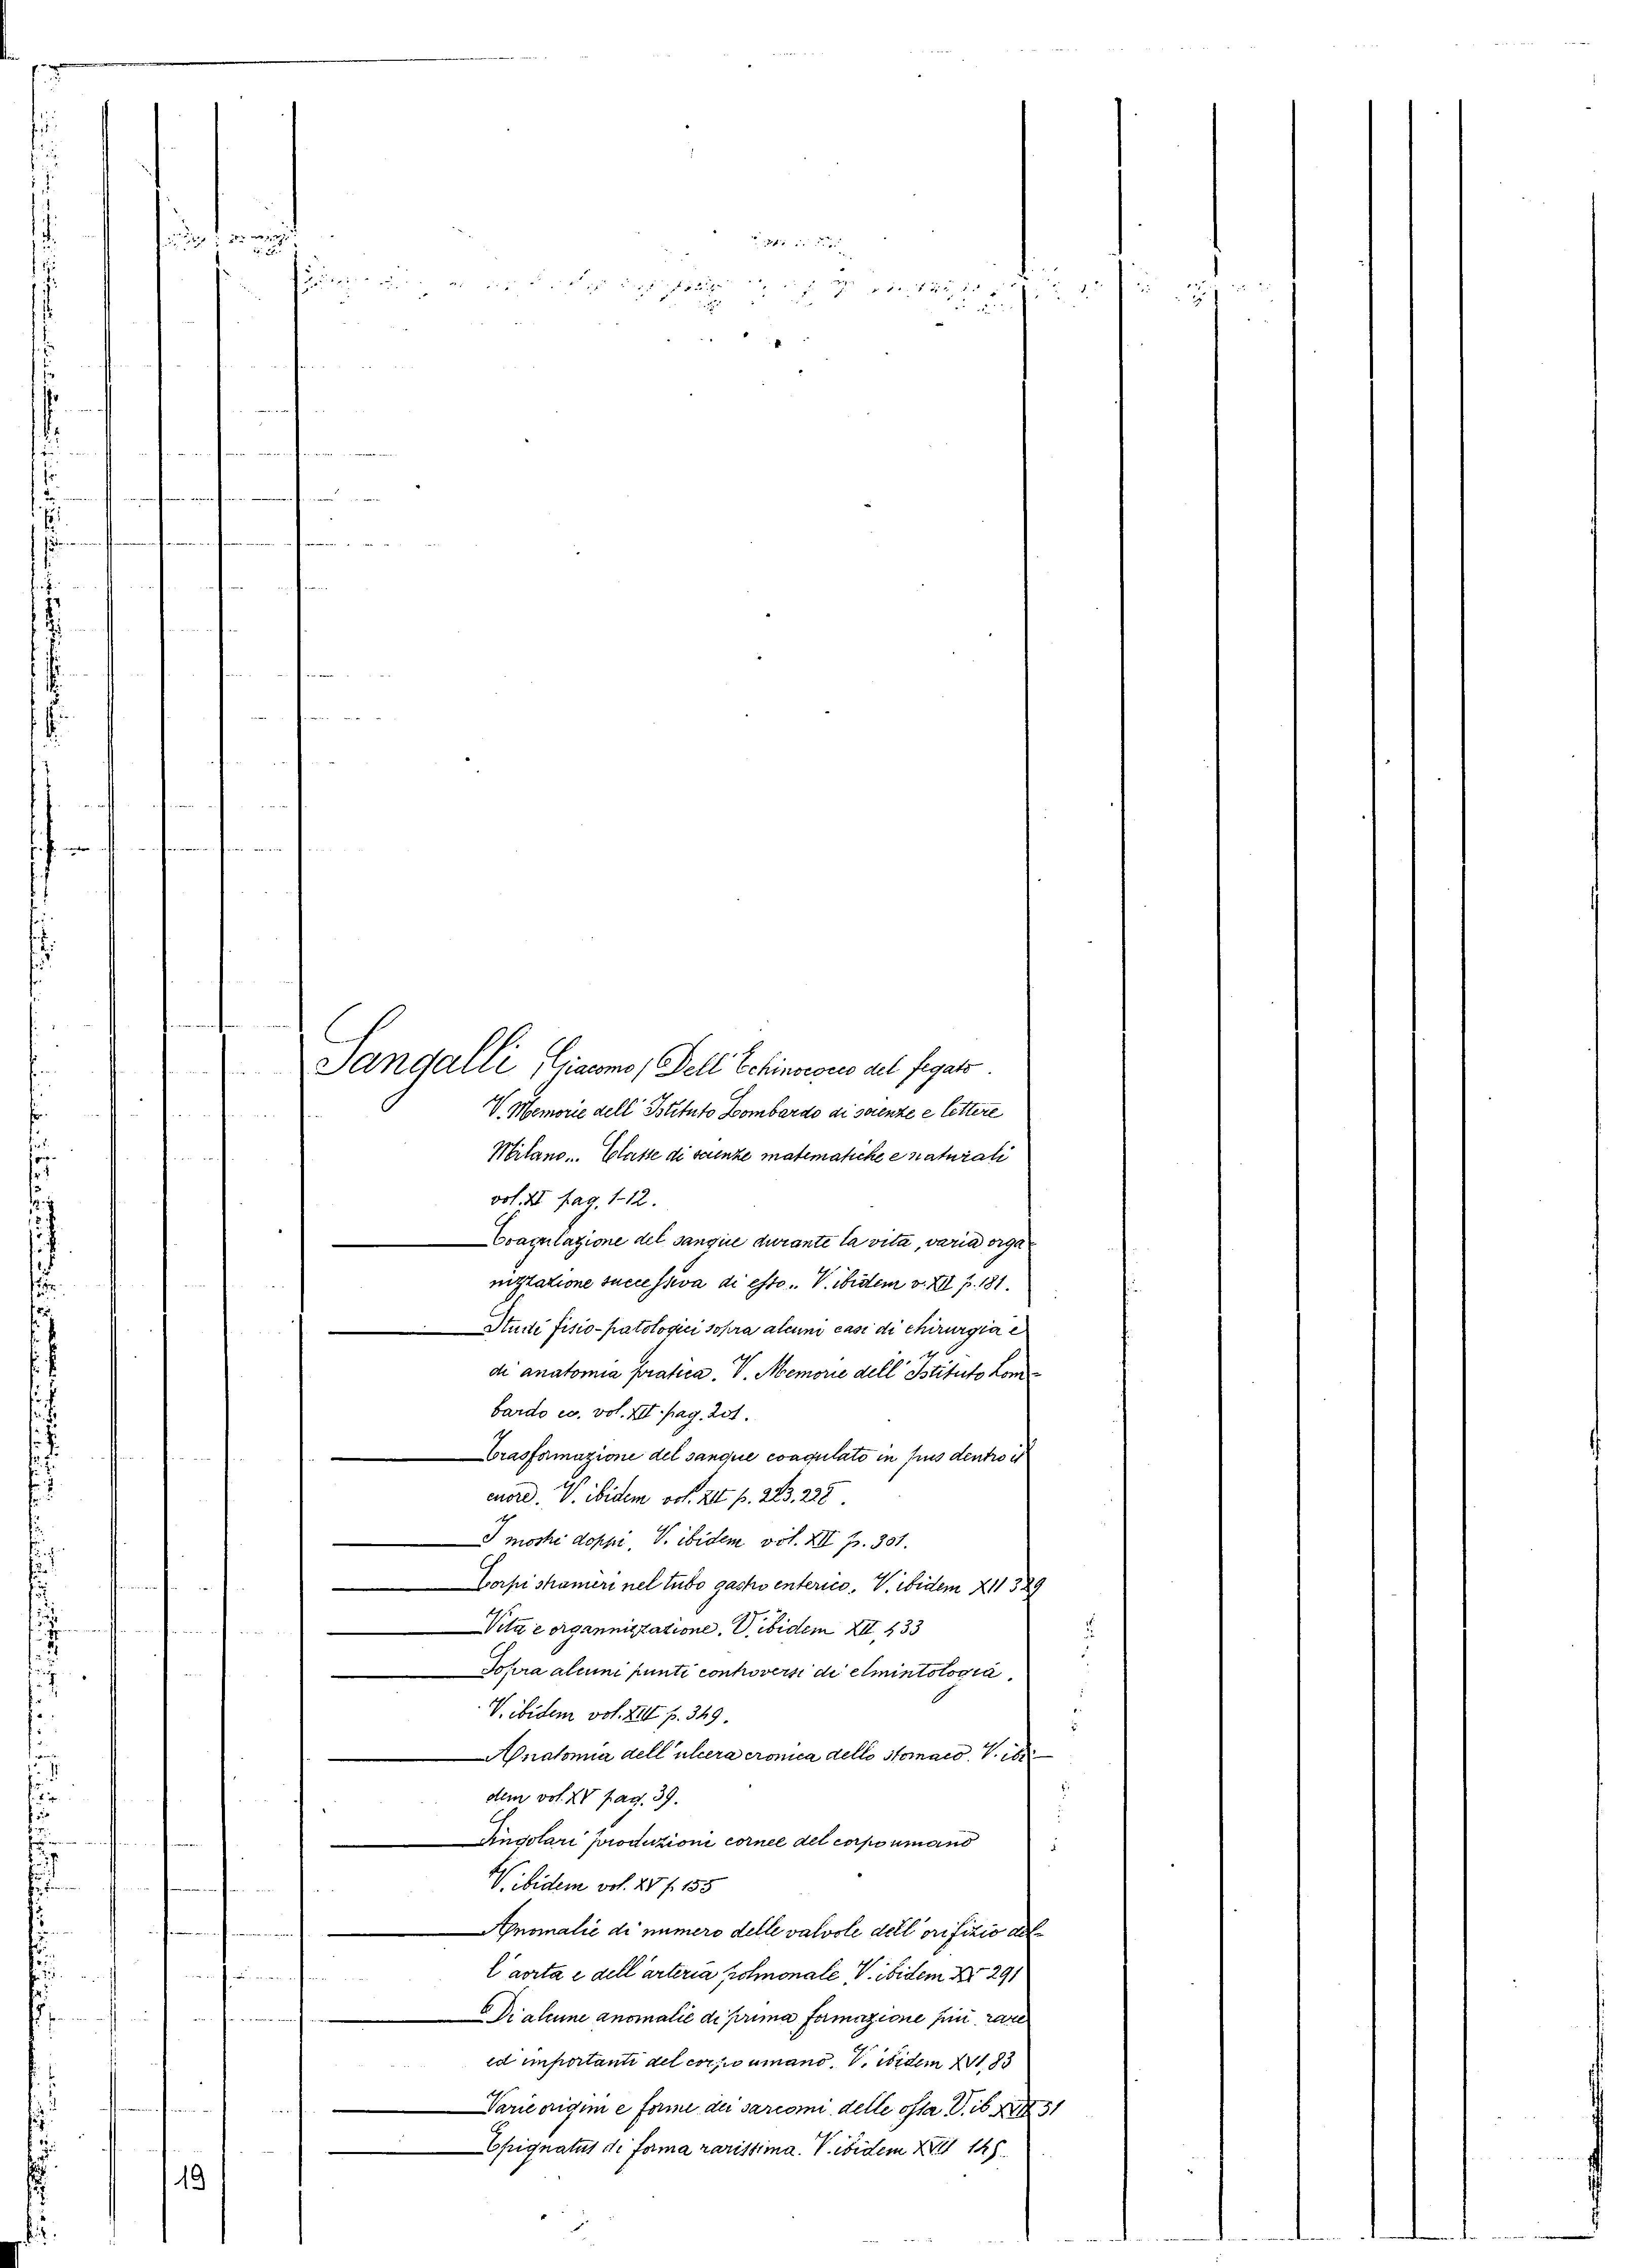 Sangalli (Giacomo) Dell' Echinococco del fegato.
V. Memorie dell' Istituto Lombardo di scienze e lettere
Milano... Classe di scienze matematiche e naturali
vol. XI pag. 1-12.
Coagulazione del sangue durante la vita, varia orga-
nizzazione successiva di esso.. V. ibidem v. XII p. 181.
Studi fisio-patologici sopra alcuni casi di chirurgia e
di anatomia pratica. V. Memorie dell' Istituto Lom-
bardo ec. vol. XII pag. 201.
Trasformazione del sangue coagulato in pus dentro il
cuore. V. ibidem vol. XII p. 223. 228.
I mostri doppi. V. ibidem vol. XII p. 301.
Corpi stranieri nel tubo gastro enterico. V. ibidem XII 329
Vita e organnizzazione. V. ibidem XII, 433
Sopra alcuni punti controversi di elmintologia.
V. ibidem vol. XIII p. 349.
Anatomia dell' ulcera cronica dello stomaco. V. ibi-
dem vol. XV pag. 39.
Singolari produzioni cornee del corpo umano
V. ibidem vol. XV p. 155
Anomalie di numero delle valvole dell' orifizio del-
l' aorta e dell' arteria polmonale. V. ibidem XV 291
Di alcune anomalie di prima formazione più rare
ed importanti del corpo umano. V. ibidem XVI, 83
Varie origini e forme dei sarcomi delle ossa V. ib. 51
Epignatus di forma rarissima. V. ibidem XVII 145
19